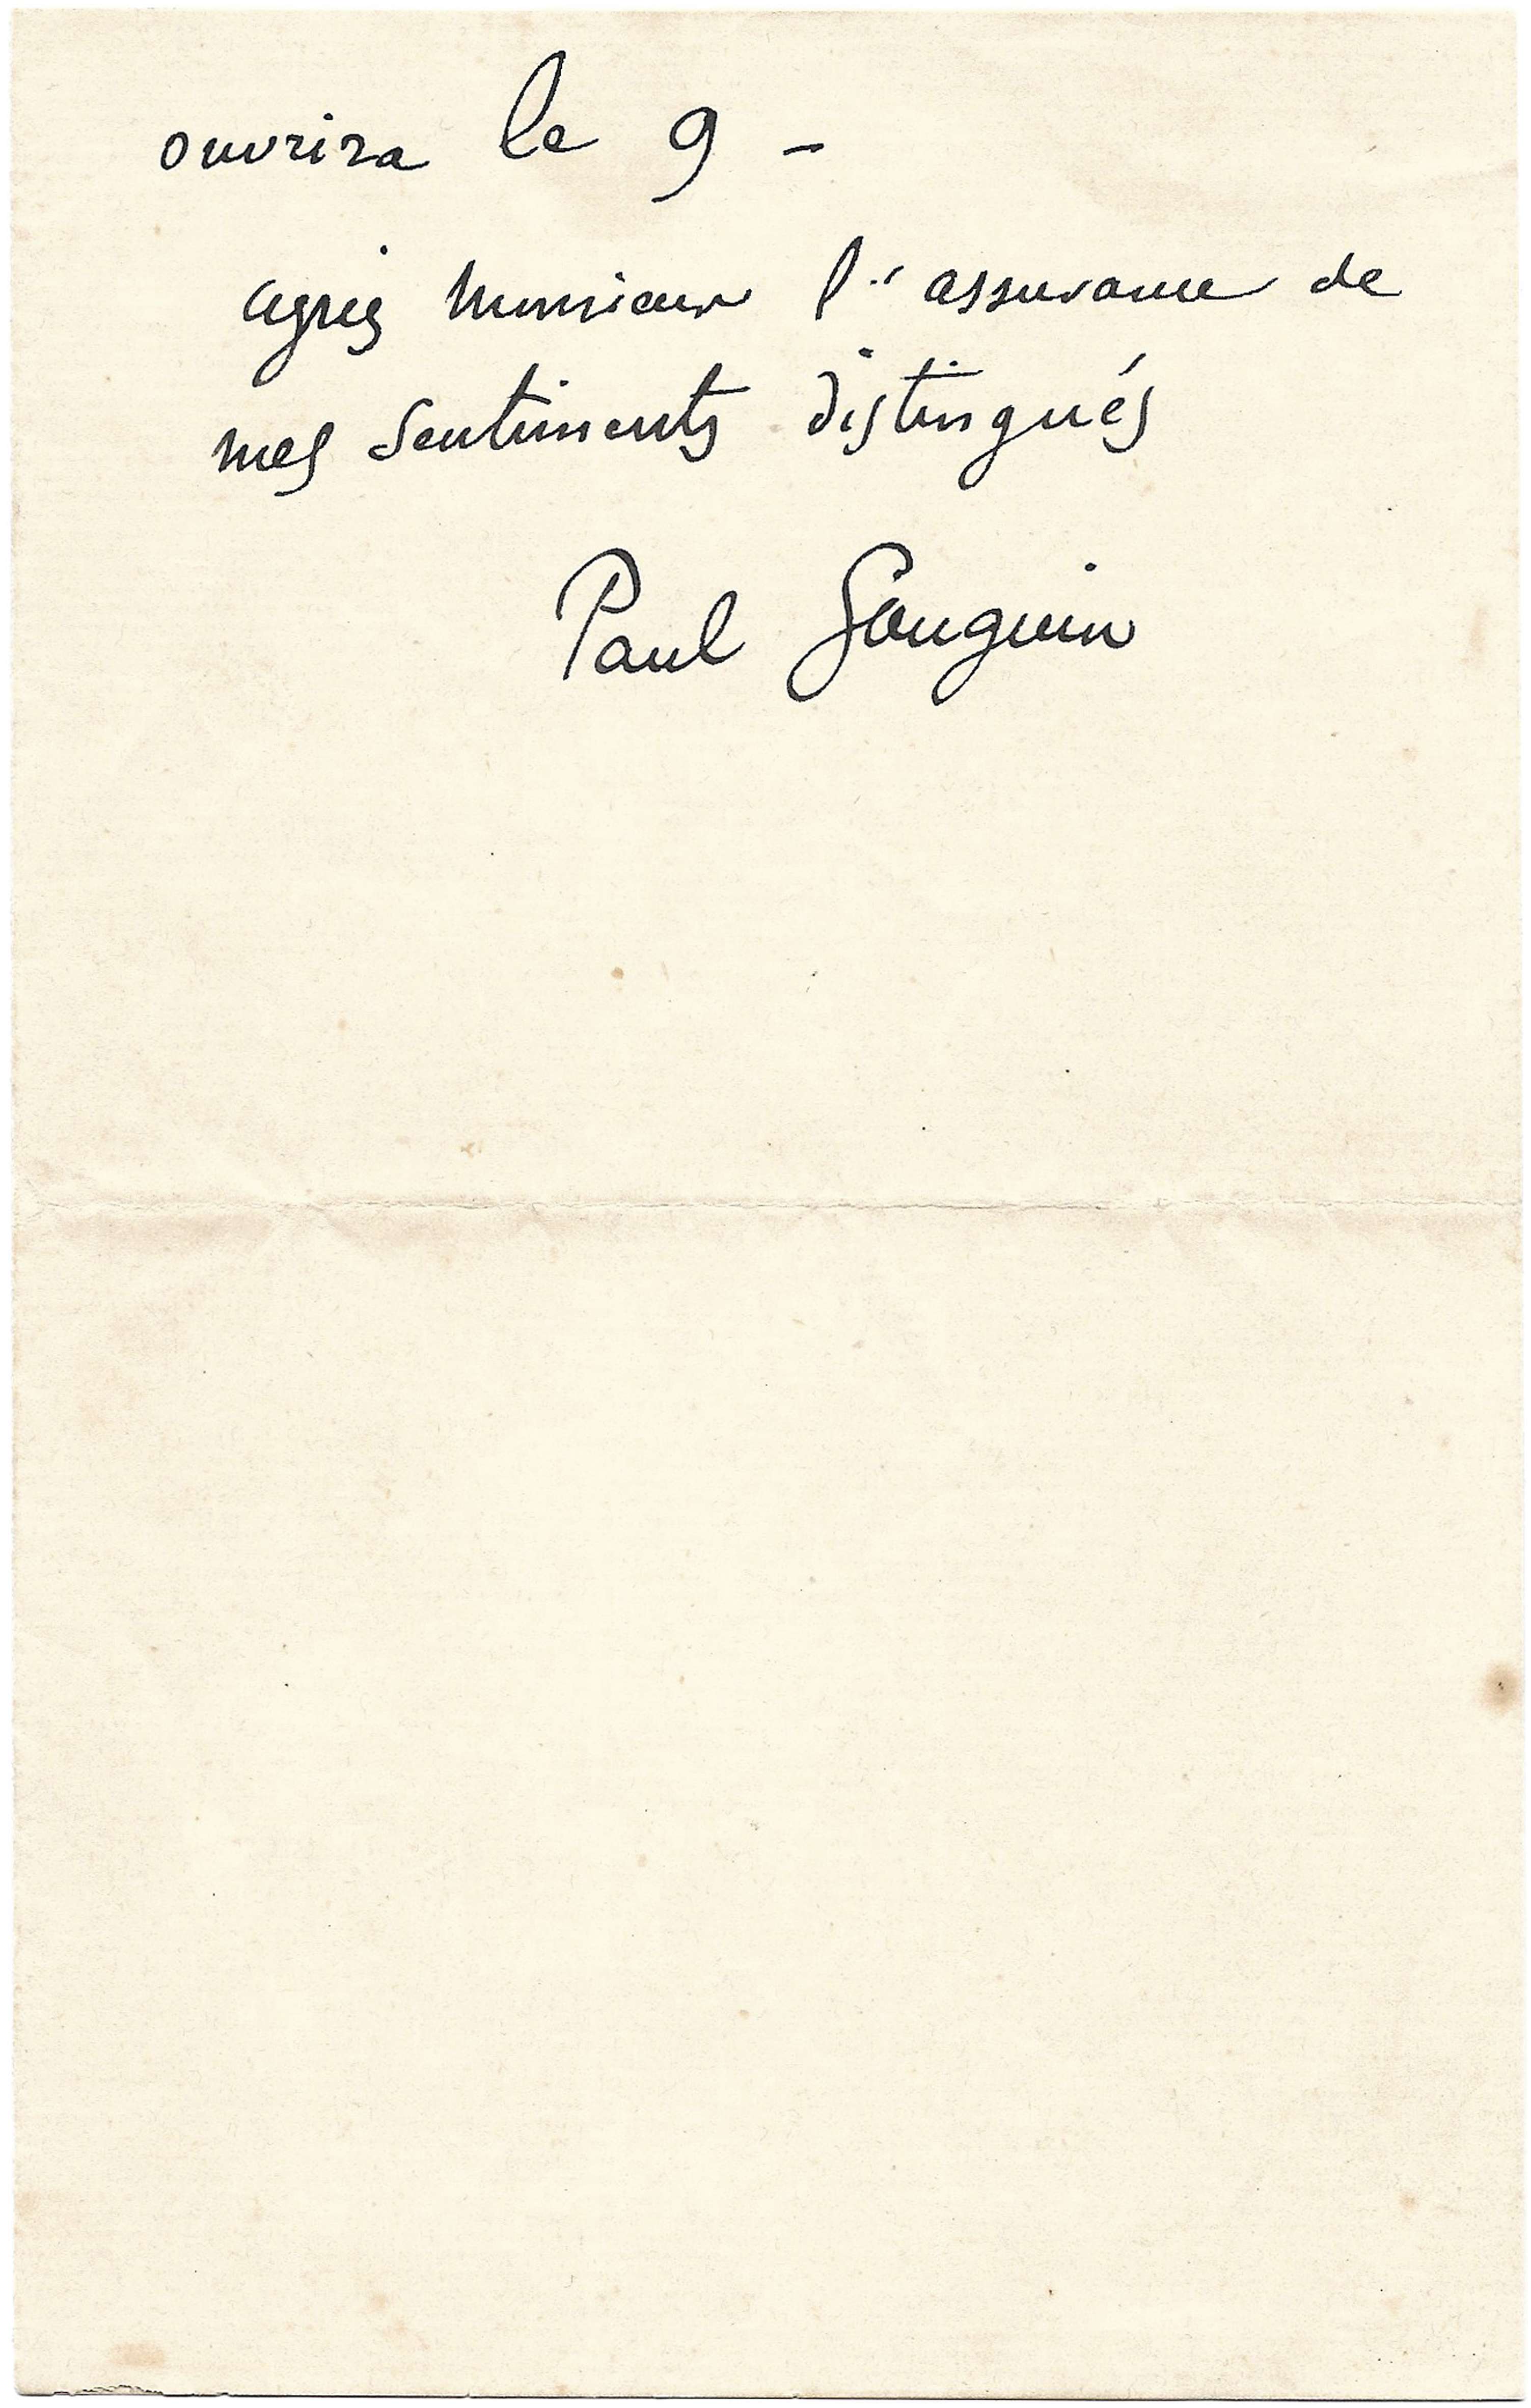 ouvrira le 9 -
agréez Monsieur l'assurance de
mes sentiments distingués
Paul Gauguin